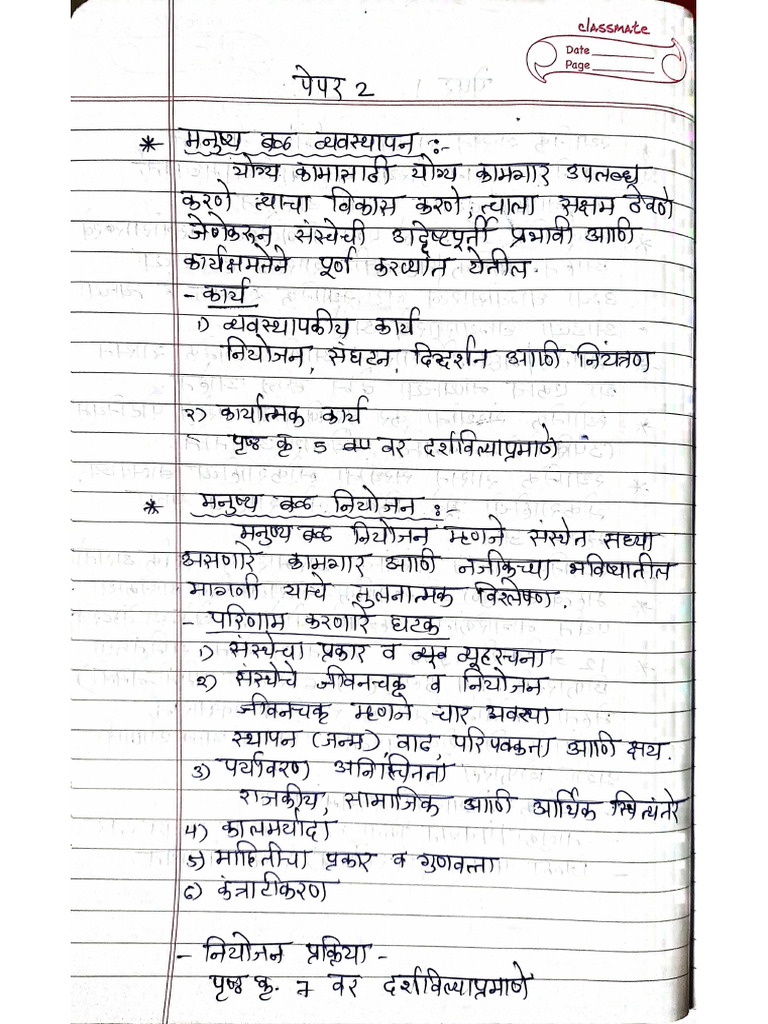 classmate
Date
Page
पेपर 2
* मनुष्य बळ व्यवस्थापन :-
योग्य कामासाठी योग्य कामगार उपलब्ध
करणे त्याचा विकास करणे, त्याला सक्षम ठेवणे
जेणेकरून संस्थेची उद्दिष्टपूर्ती प्रभावी आणि
कार्यक्षमतेने पूर्ण करण्यात येतील.
- कार्य
१) व्यवस्थापकीय कार्य
नियोजन, संघटन, दिग्दर्शन आणि नियंत्रण
२) कार्यात्मक कार्य
पृष्ठ कृ. 5 वर दर्शविल्याप्रमाणे
* मनुष्य बळ नियोजन :-
मनुष्य बळ नियोजन म्हणने संस्थेत सध्या
असणारे कामगार आणि नजीकच्या भविष्यातील
मागणी याचे तुलनात्मक विश्लेषण.
- परिणाम करणारे घटक
१) संस्थेचा प्रकार व व्यूहरचना
२) संस्थेचे जीवनचक्र व नियोजन
जीवनचक्र म्हणने चार अवस्था
स्थापन (जन्म), वाढ, परिपक्कता आणि क्षय.
३) पर्यावरण अनिश्चितता
राजकीय, सामाजिक आणि आर्थिक स्थित्यंतरे
४) कालमर्यादा
५) माहितीचा प्रकार व गुणवत्ता
६) कंत्राटीकरण
- नियोजन प्रक्रिया -
पृष्ठ कृ. 7 वर दर्शविल्याप्रमाणे